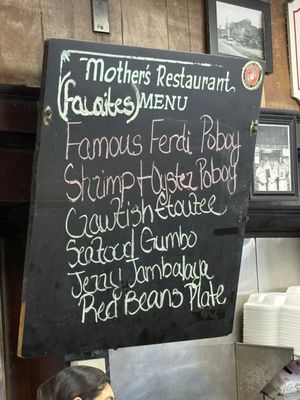 Mother's Restaurant
(Favorites) MENU
Famous Ferdi Poboy
Shrimp + Oyster Poboy
Crawfish Etoufee
Seafood Gumbo
Jerry Jambalaya
Red Beans Plate